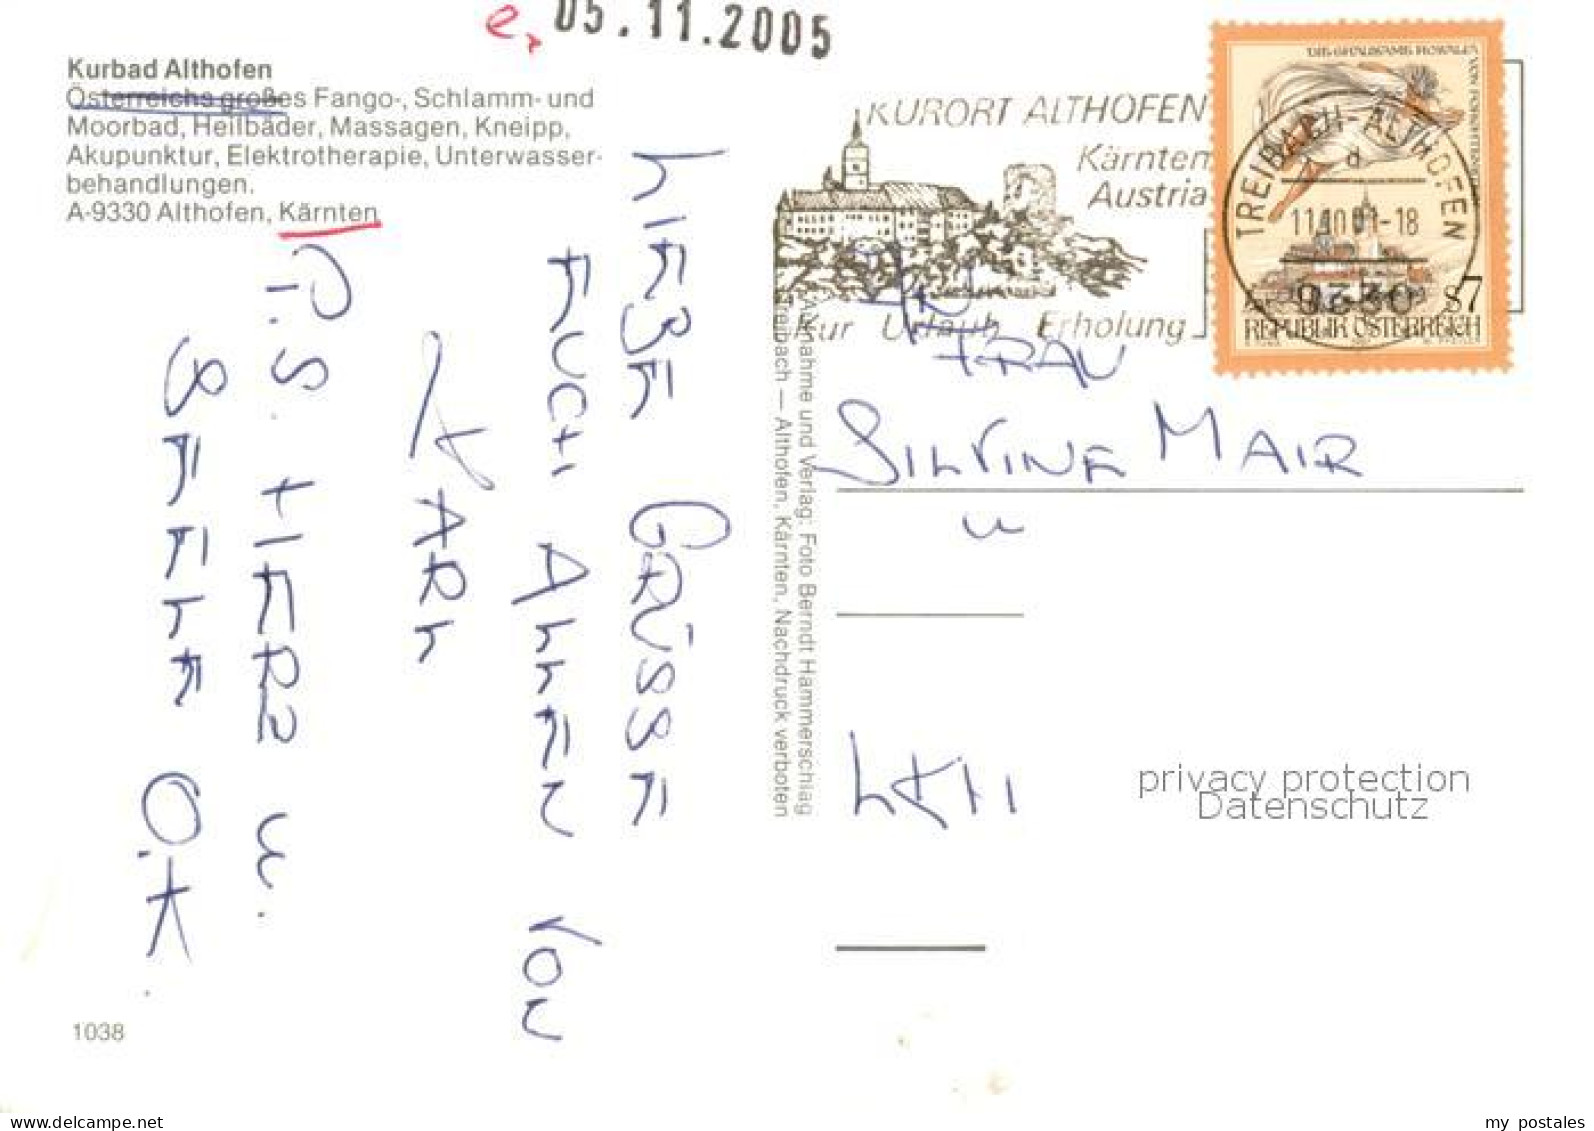 e, 05.11.2005
Kurbad Althofen
Österreichs großes Fango-, Schlamm- und
Moorbad, Heilbäder, Massagen, Kneipp,
Akupunktur, Elektrotherapie, Unterwasser-
behandlungen.
A-9330 Althofen, Kärnten
LIEBE GRÜSSE
EUCH ALLEN VON
KARL
P.S. HERZ U.
SEELE O.K.
1038
Aufnahme und Verlag: Foto Berndt Hammerschlag
Treibach — Althofen, Kärnten, Nachdruck verboten
KURORT ALTHOFEN
Kärnten
Austria
Kur Urlaub Erholung
TREIBACH-ALTHOFEN
d
11.10.01-18
9330
S7
REPUBLIK ÖSTERREICH
FRAU
SILVINE MAIR
u
privacy protection
Datenschutz
my postales
delcampe.net